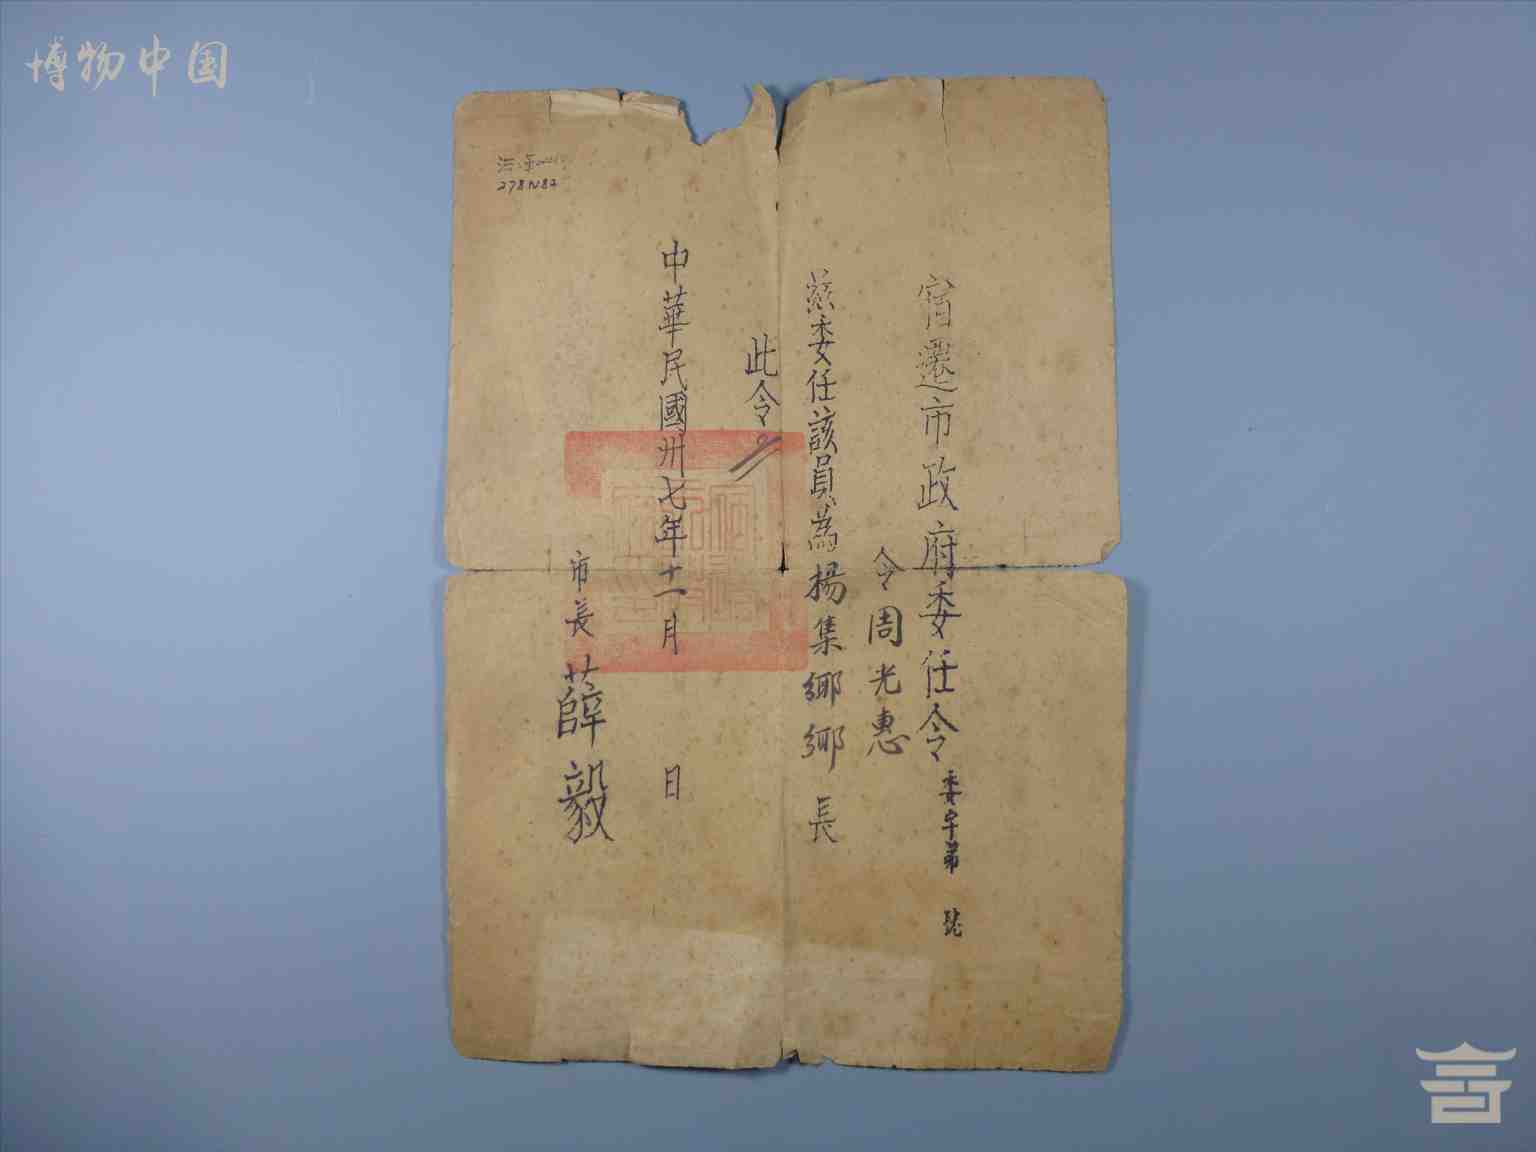 博物中国
宿遷市政府委任令 委字第 號
令周光惠
茲委任該員為楊集鄉鄉長
此令
中華民國卅七年十一月 日
市長 薛毅
278N82